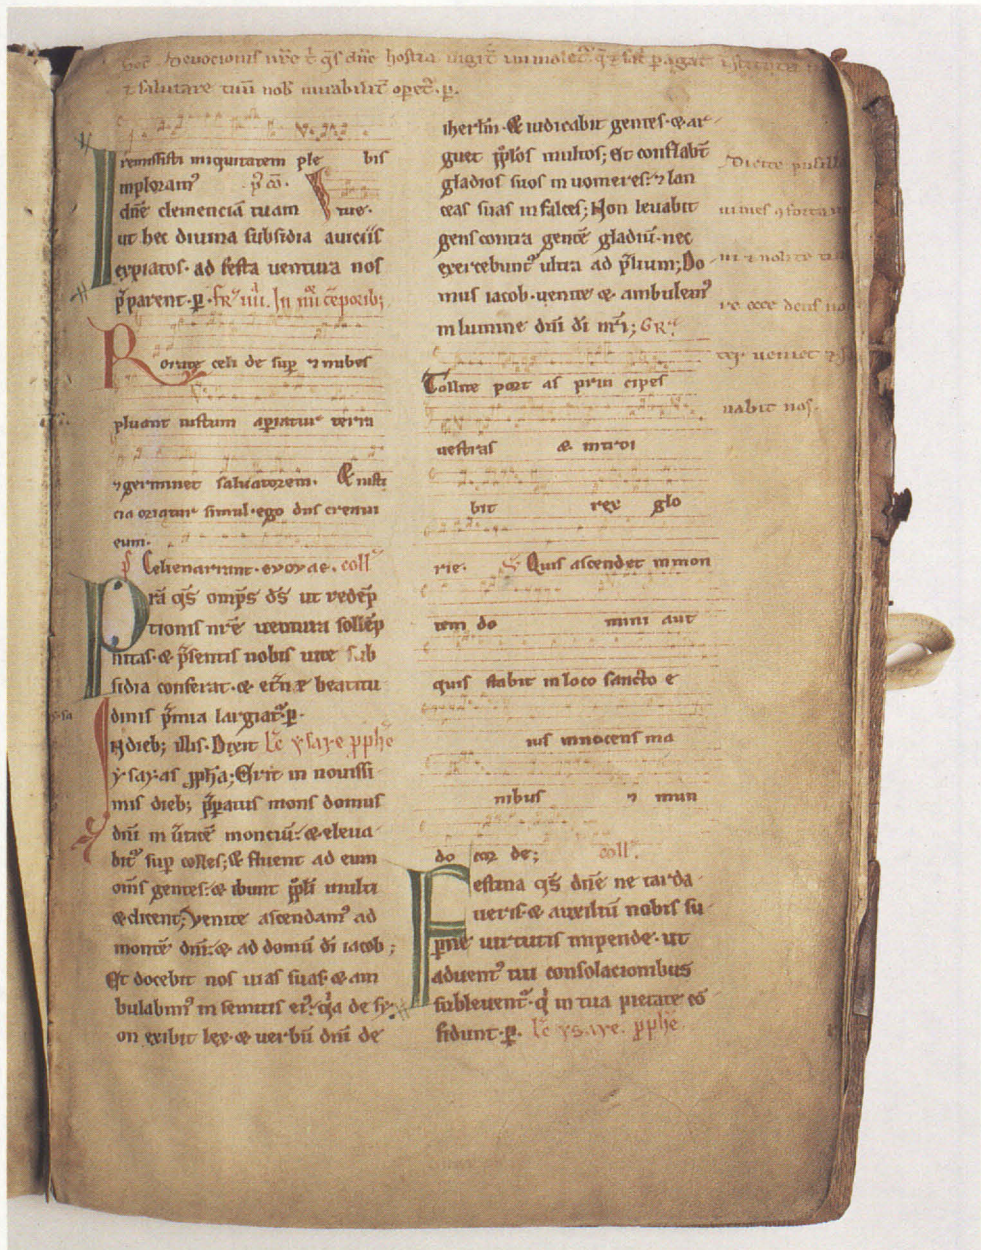 Devocionis nr̄e t̄ q̄s dn̄e hostia iugit̄ immolet᷑
⁊ salutare tuū nob̄ mirabilit̄ opet᷑. p.
remisisti iniquitatem ple bis
Imploram᷒ p̄ cō.
dn̄e clemenciā tuam
ut hec diuina subsidia a uiciis
expiatos. ad festa uentura nos
p̄parent. p. fr̄ iiii. In iiii tēporib;
Rorate celi de sup ⁊ nubes
pluant iustum aperiatur terra
⁊ germinet saluatorem. & iusti
cia oriatur simul. ego dn̄s creaui
eum.
p̄ Celi enarrant. euouae. coll̄
Prā q̄s omp̄s ds̄ ut redēp
tionis nr̄e uentura sollēp
nitas. & p̄sentis nobis uite sub
sidia conferat. & et̄ne beatitu
dinis p̄mia largiat᷑. p.
In dieb; illis. Dixit Lc̄ ysaye p̄ph̄e
ysayas p̄pha; Erit in nouissi
mis dieb; p̄paratus mons domus
dn̄i in u̅tice montiū. & eleua
bit᷑ sup colles; & fluent ad eum
om̄s gentes. & ibunt pp̄li multi
& dicent; Venite ascendam᷒ ad
montē dn̄i. & ad domū dī iacob;
Et docebit nos uias suas. & am
bulabim᷒ in semitis ei᷒. q̄a de sy
on exibit lex. & uerbū dn̄i de
iherl̄m. & iudicabit gentes. & ar
guet pp̄los multos; Et conflabt̄
gladios suos in uomeres. ⁊ lan
ceas suas in falces; Non leuabit
gens contra gentē gladiū. nec
exercebunt᷑ ultra ad p̄lium; Do
mus iacob. uenite & ambulem᷒
in lumine dn̄i dī nr̄i; GR̄
Tollite port as prin cipes
uestras & introi
bit rex glo
rie. Quis ascendet in mon
tem do mini aut
quis stabit in loco sancto e
ius innocens ma
nibus ⁊ mun
do cor de; coll̄.
Festina q̄s dn̄e ne tarda
ueris. & auxiliū nobis su
p̄ne uirtutis inpende. ut
aduent᷒ tui consolacionibus
subleuent᷑. q̄ in tua pietate cō
fidunt. p. Lc̄ ysaye p̄ph̄e
Dicite pusill
nimes ⁊forta
ni ⁊ nolite ti
re ecce deus no
ter ueniet ⁊
uabit nos.